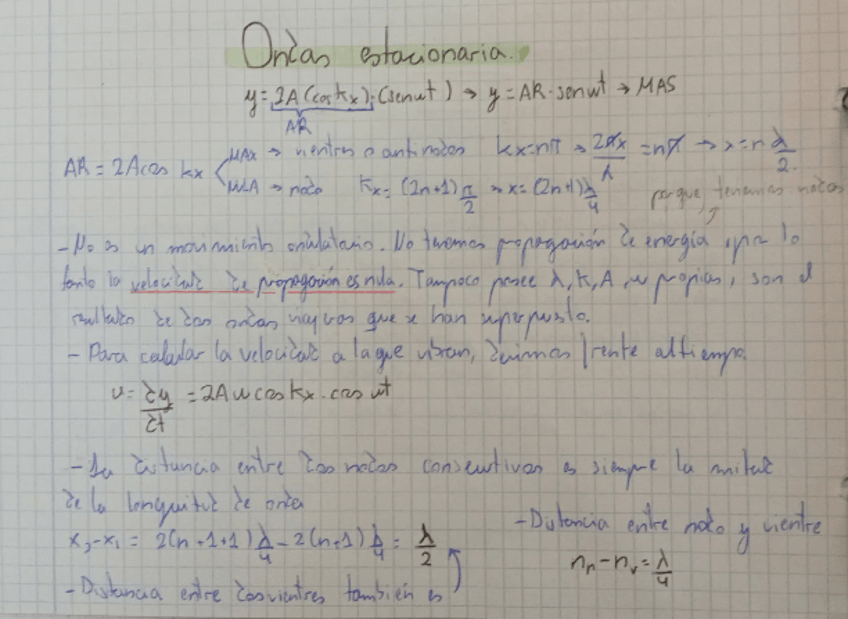 Ondas estacionaria.
y = 2A(cos kx)·(sen wt) → y = AR · sen wt → MAS
AR
AR = 2A cos kx
MAX → vientres o antinodos kx = nπ → 2πx/λ = nπ → x = n λ/2
→ nodo kx = (2n+1) π/2 → x = (2n+1) λ/4
porque tenemos nodos
- No es un movimiento ondulatorio. No tenemos propagación de energía, por lo
tanto la velocidad de propagación es nula. Tampoco posee λ, k, A, w propias, son el
resultado de dos ondas viajeras que se han superpuesto.
- Para calcular la velocidad a la que vibran, frente al tiempo.
v = ∂y/∂t = 2A w cos kx · cos wt
- La distancia entre dos nodos consecutivos es siempre la mitad
de la longuitud de onda
x₂ - x₁ = 2(n+1+1) λ/4 - 2(n+1) λ/4 = λ/2
- Distancia entre dos vientres también es
- Distancia entre nodo y vientre
nₙ - nᵥ = λ/4